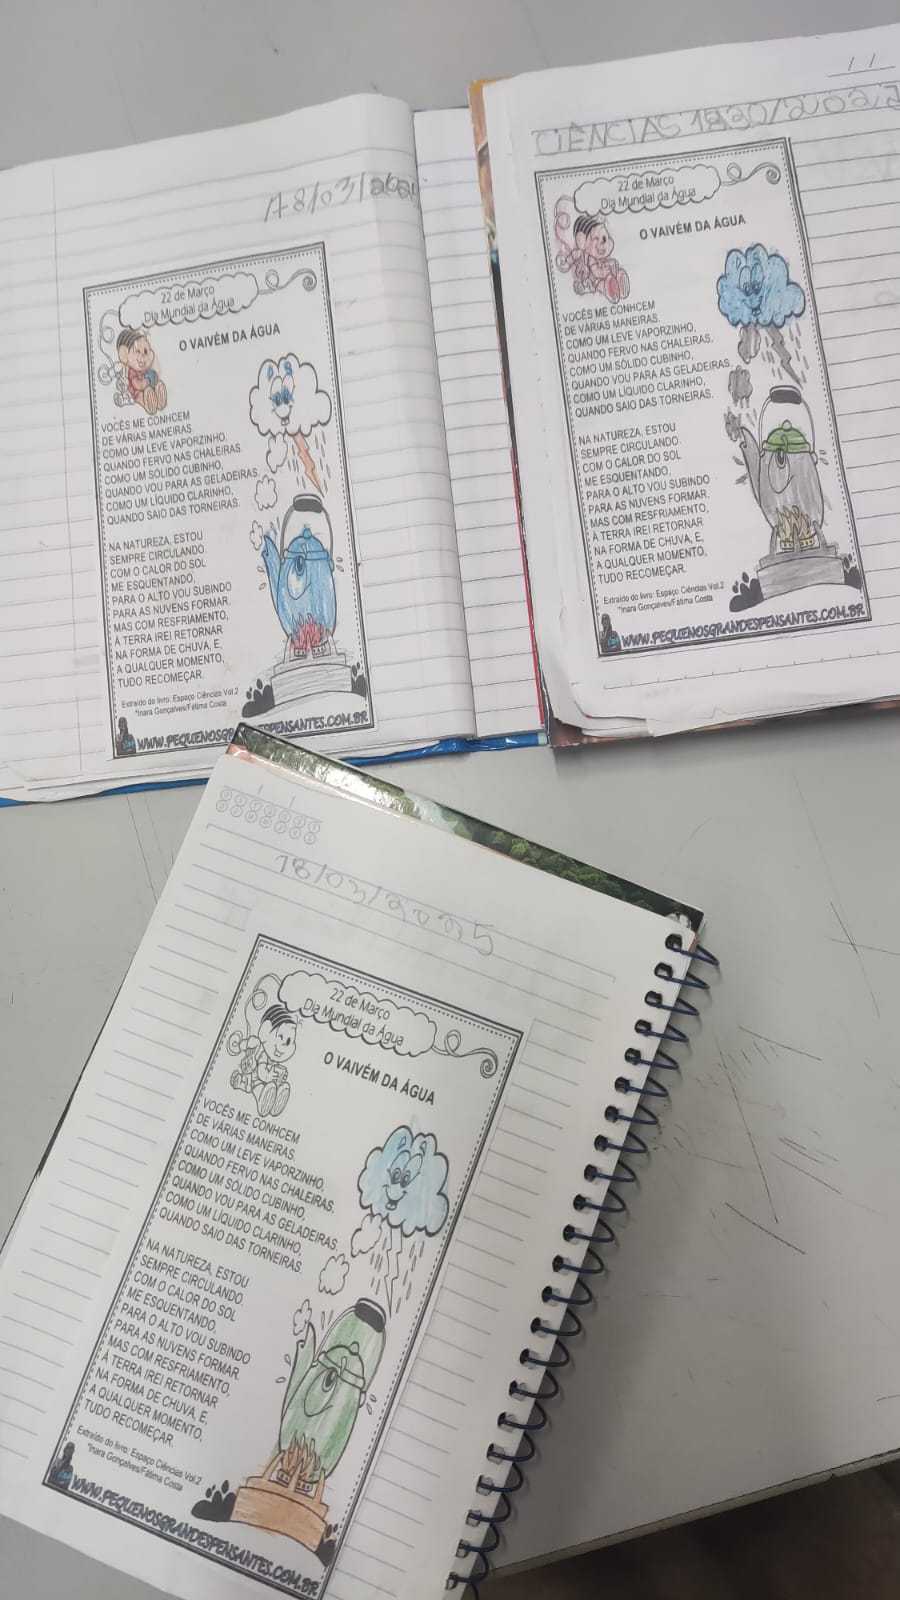 18/03/2025
22 de Março
Dia Mundial da Água
O VAIVÉM DA ÁGUA
VOCÊS ME CONHCEM
DE VÁRIAS MANEIRAS.
COMO UM LEVE VAPORZINHO,
QUANDO FERVO NAS CHALEIRAS.
COMO UM SÓLIDO CUBINHO,
QUANDO VOU PARA AS GELADEIRAS.
COMO UM LÍQUIDO CLARINHO,
QUANDO SAIO DAS TORNEIRAS.
NA NATUREZA, ESTOU
SEMPRE CIRCULANDO.
COM O CALOR DO SOL
ME ESQUENTANDO,
PARA O ALTO VOU SUBINDO
PARA AS NUVENS FORMAR.
MAS COM RESFRIAMENTO,
À TERRA IREI RETORNAR
NA FORMA DE CHUVA, E,
A QUALQUER MOMENTO,
TUDO RECOMEÇAR.
Extraído do livro: Espaço Ciências Vol.2
*Inara Gonçalves/Fátima Costa
WWW.PEQUENOSGRANDESPENSANTES.COM.BR
CIÊNCIAS
22 de Março
Dia Mundial da Água
O VAIVÉM DA ÁGUA
VOCÊS ME CONHCEM
DE VÁRIAS MANEIRAS.
COMO UM LEVE VAPORZINHO,
QUANDO FERVO NAS CHALEIRAS.
COMO UM SÓLIDO CUBINHO,
QUANDO VOU PARA AS GELADEIRAS.
COMO UM LÍQUIDO CLARINHO,
QUANDO SAIO DAS TORNEIRAS.
NA NATUREZA, ESTOU
SEMPRE CIRCULANDO.
COM O CALOR DO SOL
ME ESQUENTANDO,
PARA O ALTO VOU SUBINDO
PARA AS NUVENS FORMAR.
MAS COM RESFRIAMENTO,
À TERRA IREI RETORNAR
NA FORMA DE CHUVA, E,
A QUALQUER MOMENTO,
TUDO RECOMEÇAR.
Extraído do livro: Espaço Ciências Vol.2
*Inara Gonçalves/Fátima Costa
WWW.PEQUENOSGRANDESPENSANTES.COM.BR
18/03/2025
22 de Março
Dia Mundial da Água
O VAIVÉM DA ÁGUA
VOCÊS ME CONHCEM
DE VÁRIAS MANEIRAS.
COMO UM LEVE VAPORZINHO,
QUANDO FERVO NAS CHALEIRAS.
COMO UM SÓLIDO CUBINHO,
QUANDO VOU PARA AS GELADEIRAS.
COMO UM LÍQUIDO CLARINHO,
QUANDO SAIO DAS TORNEIRAS.
NA NATUREZA, ESTOU
SEMPRE CIRCULANDO.
COM O CALOR DO SOL
ME ESQUENTANDO,
PARA O ALTO VOU SUBINDO
PARA AS NUVENS FORMAR.
MAS COM RESFRIAMENTO,
À TERRA IREI RETORNAR
NA FORMA DE CHUVA, E,
A QUALQUER MOMENTO,
TUDO RECOMEÇAR.
Extraído do livro: Espaço Ciências Vol.2
*Inara Gonçalves/Fátima Costa
WWW.PEQUENOSGRANDESPENSANTES.COM.BR